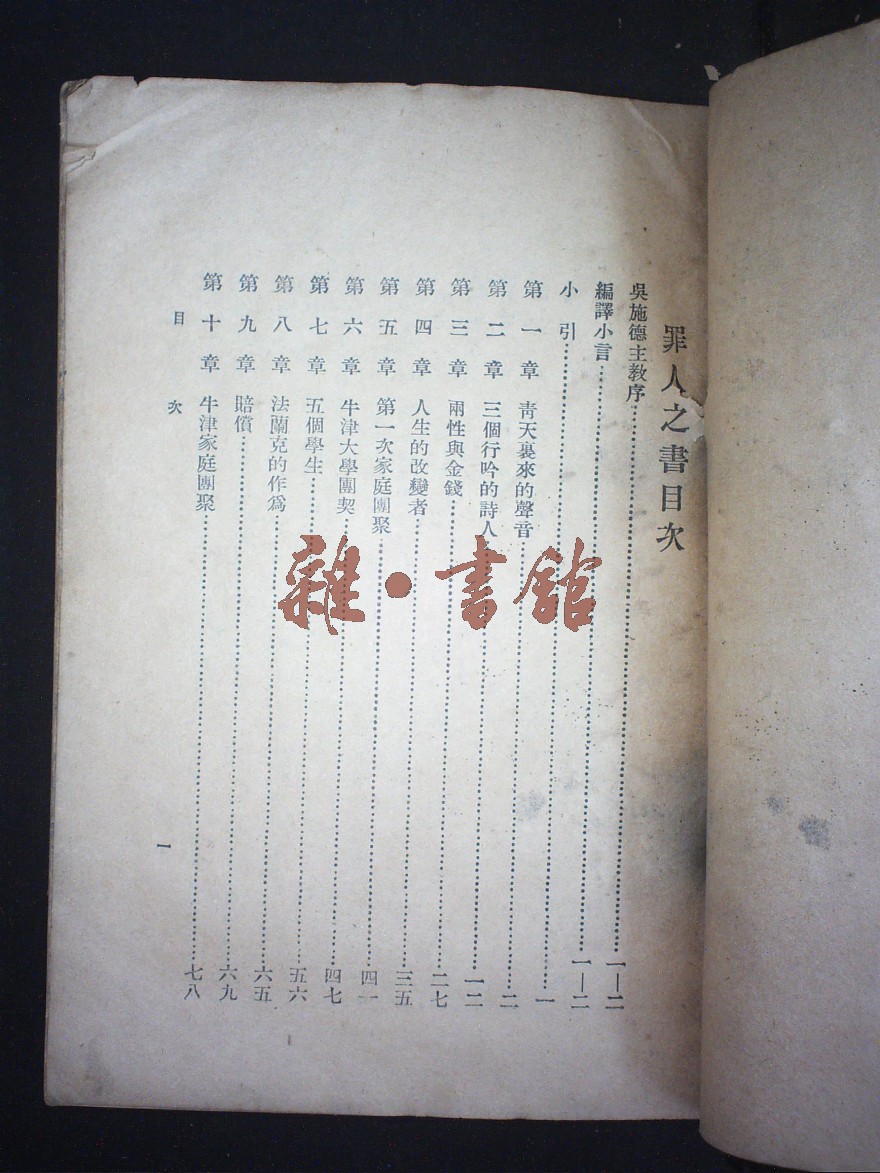 罪人之書目次
吳施德主教序…………一—二
編譯小言…………一—二
小引…………一
第一章 靑天裏來的聲音…………二
第二章 三個行吟的詩人…………一二
第三章 兩性與金錢…………二七
第四章 人生的改變者…………三五
第五章 第一次家庭團聚…………四一
第六章 牛津大學團契…………四七
第七章 五個學生…………五六
第八章 法蘭克的作爲…………六五
第九章 賠償…………六九
第十章 牛津家庭團聚…………七八
目次
一
雜·書館